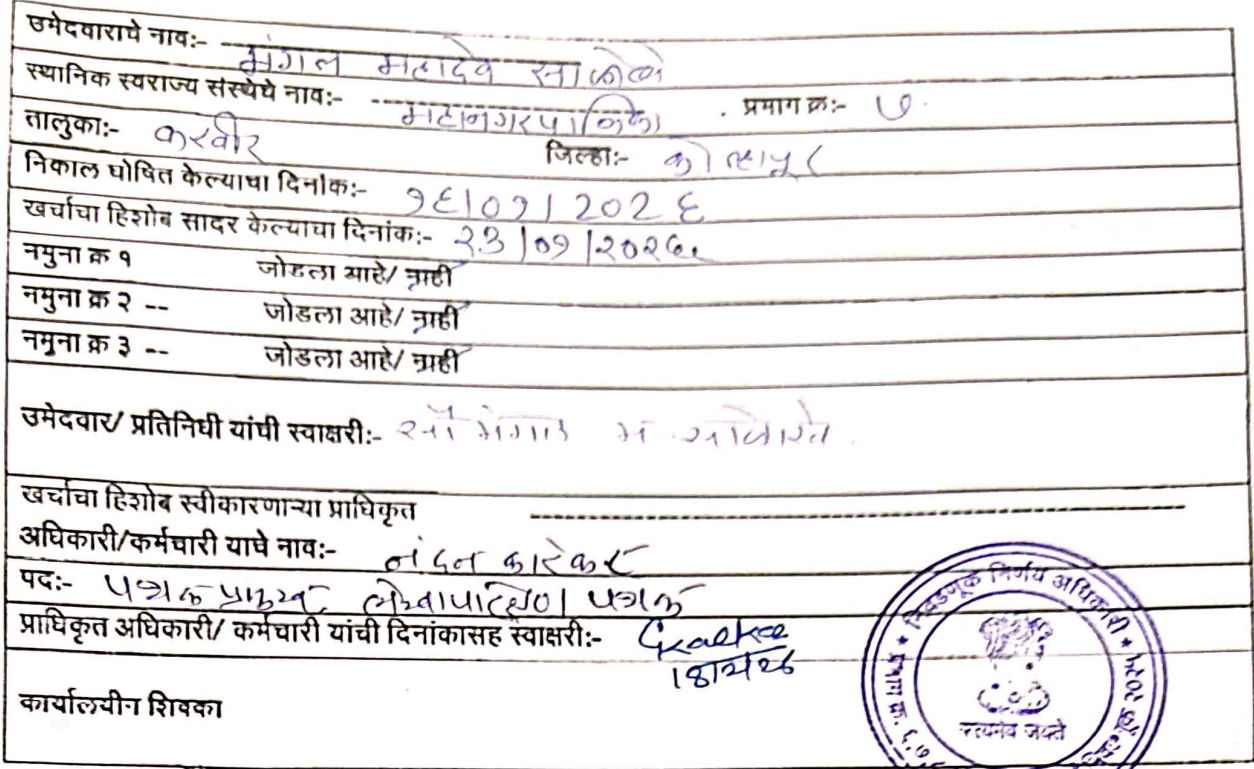 उमेदवाराचे नाव:- मंगल महादेव साळोखे
स्थानिक स्वराज्य संस्थेचे नाव:- महानगरपालिका . प्रभाग क्र:- ७.
तालुका:- करवीर जिल्हा:- कोल्हापूर
निकाल घोषित केल्याचा दिनांक:- १६/०१/202६
खर्चाचा हिशोब सादर केल्याचा दिनांक:- २३/०१/२०२६.
नमुना क्र १ जोडला आहे/ नाही
नमुना क्र २ -- जोडला आहे/ नाही
नमुना क्र ३ -- जोडला आहे/ नाही
उमेदवार/ प्रतिनिधी यांची स्वाक्षरी:- सौ मंगल म साळोखे.
खर्चाचा हिशोब स्वीकारणाऱ्या प्राधिकृत
अधिकारी/कर्मचारी याचे नाव:- नंदन कारेकर
पद:- पथक प्रमुख, लेखापरीक्षण पथक
प्राधिकृत अधिकारी/ कर्मचारी यांची दिनांकासह स्वाक्षरी:-
कार्यालयीन शिक्का
निवडणूक निर्णय अधिकारी
प्रभाग क्र. ६,७
सत्यमेव जयते